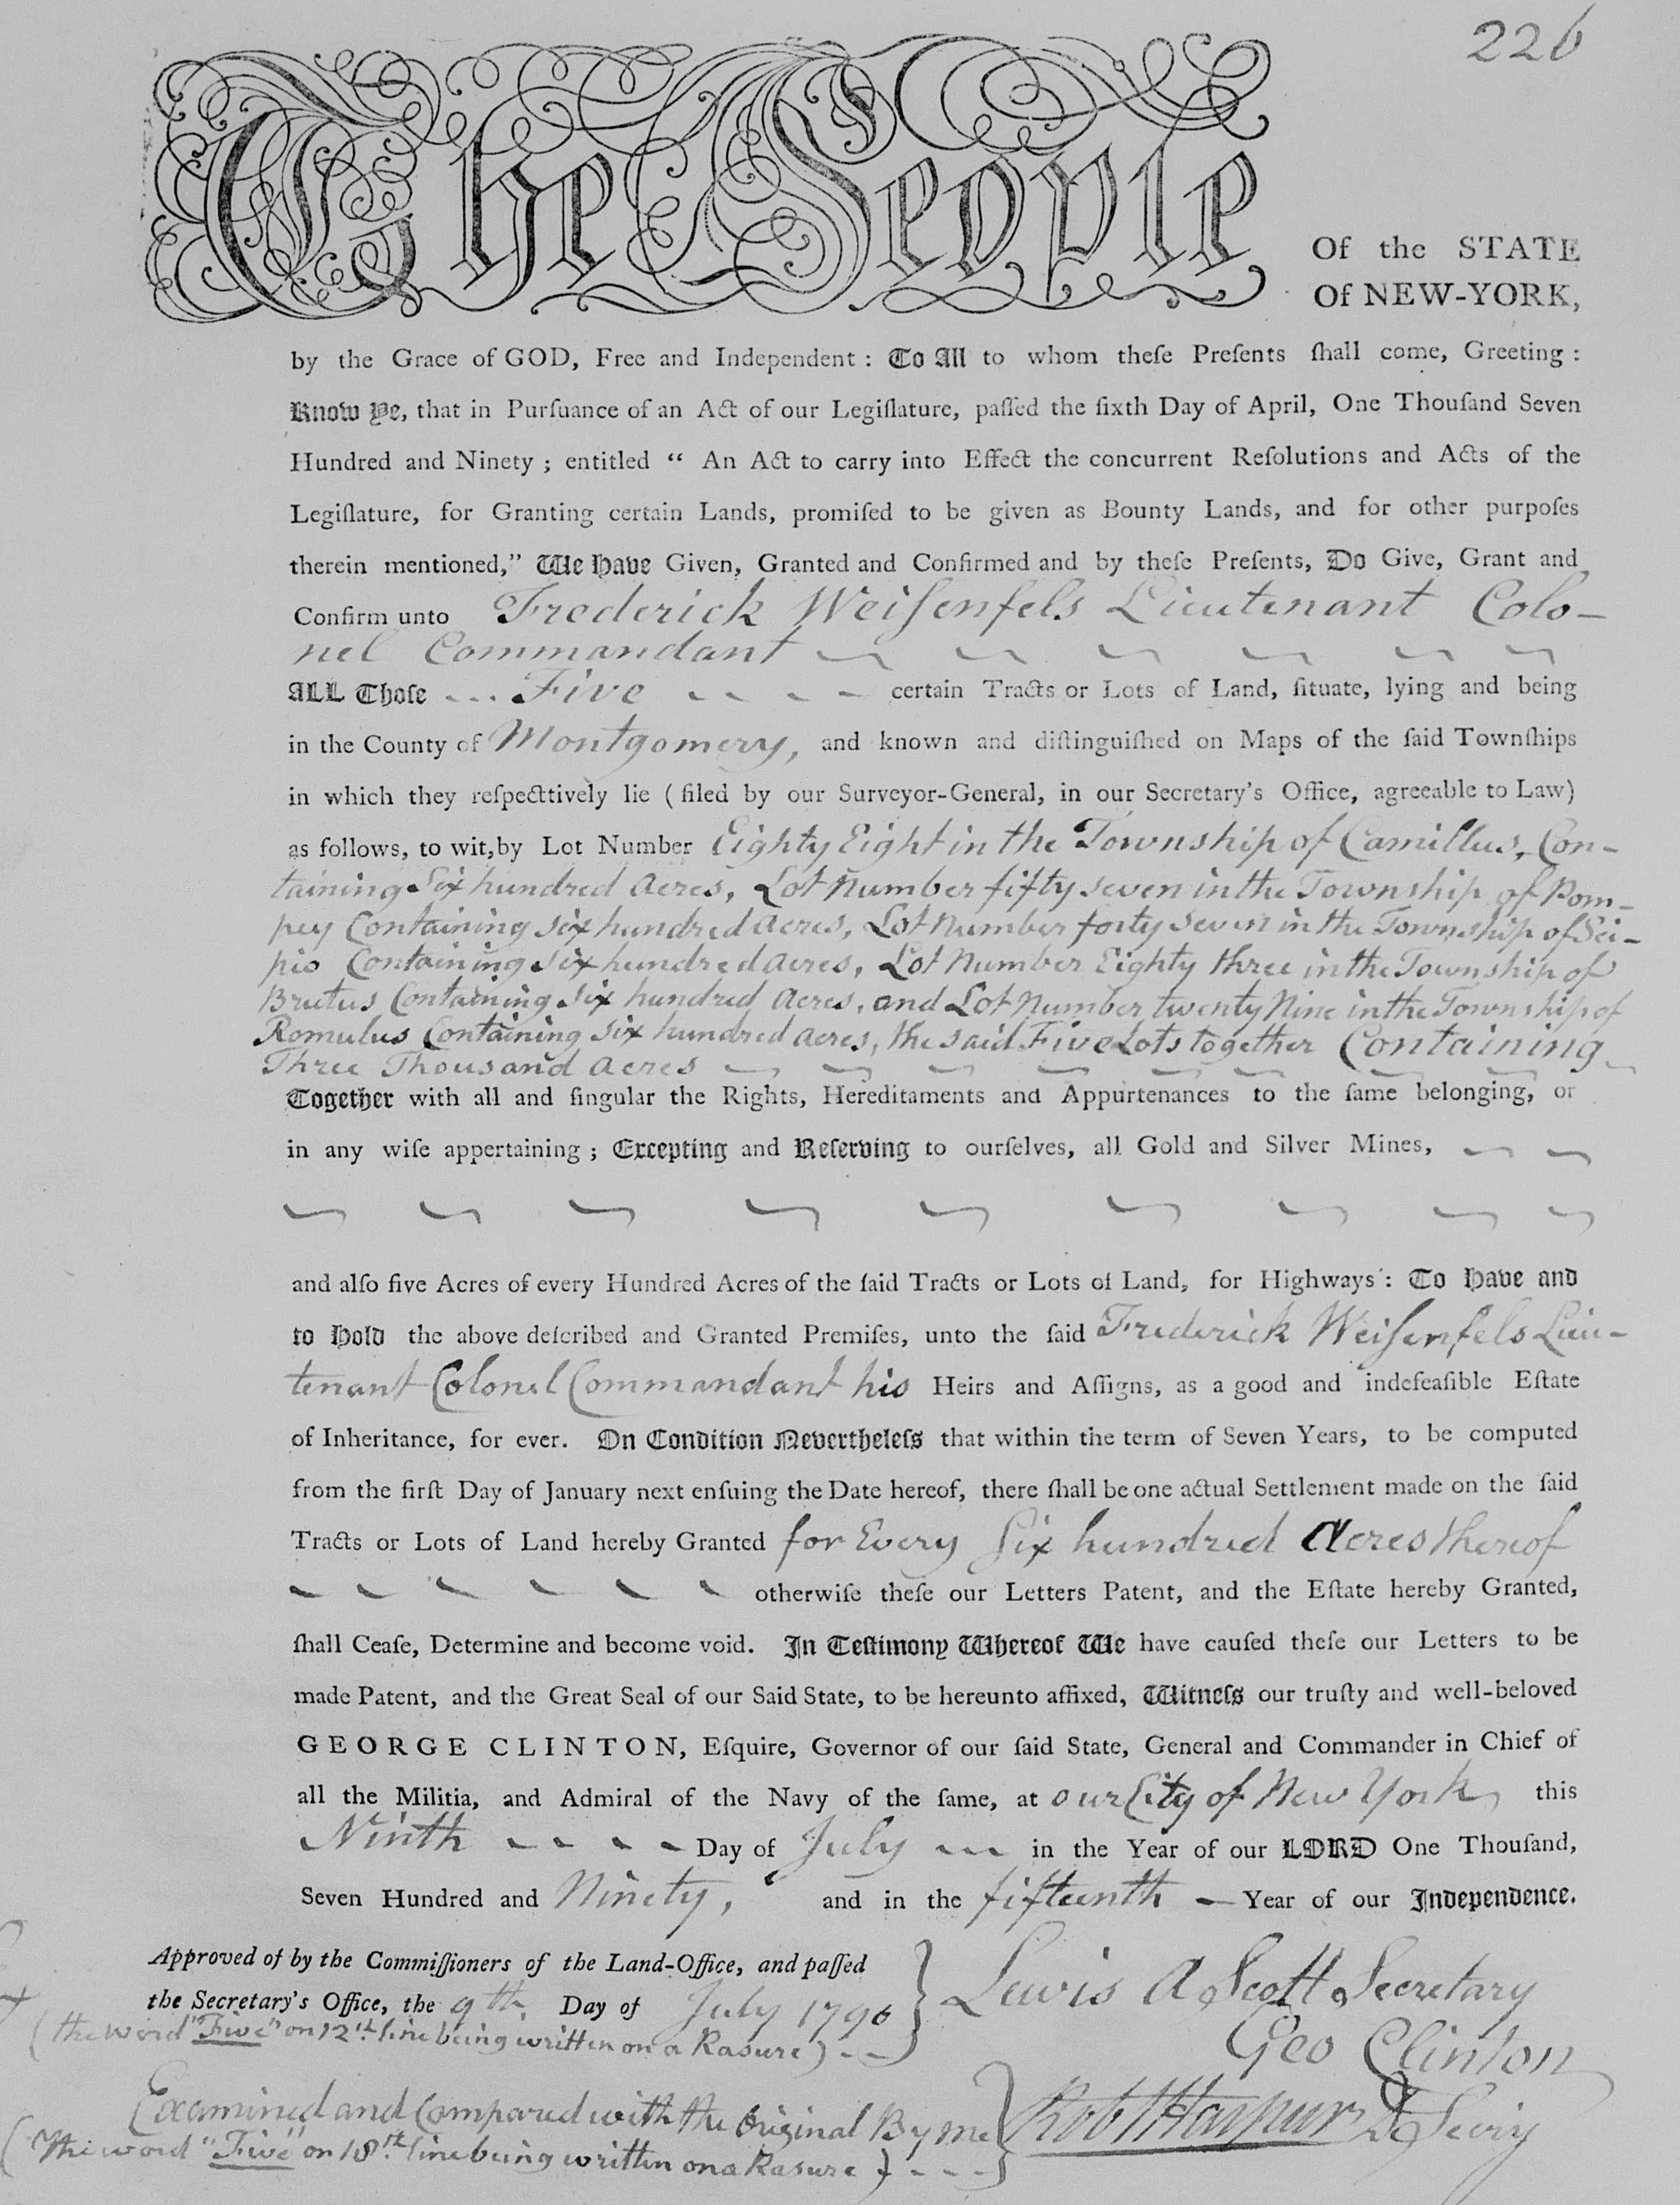 226
The People
Of the STATE
Of NEW-YORK,
by the Grace of GOD, Free and Independent : To All to whom theſe Preſents ſhall come, Greeting :
Know Ye, that in Purſuance of an Act of our Legiſlature, paſſed the ſixth Day of April, One Thouſand Seven
Hundred and Ninety ; entitled “ An Act to carry into Effect the concurrent Reſolutions and Acts of the
Legiſlature, for Granting certain Lands, promiſed to be given as Bounty Lands, and for other purpoſes
therein mentioned,” We Have Given, Granted and Confirmed and by theſe Preſents, Do Give, Grant and
Confirm unto Frederick Weiſenfels Lieutenant Colo-
nel Commandant
ALL Thoſe Five certain Tracts or Lots of Land, ſituate, lying and being
in the County of Montgomery, and known and diſtinguiſhed on Maps of the ſaid Townſhips
in which they reſpecttively lie ( filed by our Surveyor-General, in our Secretary’s Office, agreeable to Law)
as follows, to wit, by Lot Number Eighty Eight in the Township of Camillus, Con-
taining Six hundred Acres, Lot Number fifty seven in the Township of Pom-
pey Containing six hundred Acres, Lot Number forty seven in the Township of Sci-
pio Containing six hundred acres, Lot Number Eighty three in the Township of
Brutus Containing six hundred Acres, and Lot Number twenty Nine in the Township of
Romulus Containing six hundred acres, the said Five Lots together Containing
Three Thousand Acres
Together with all and ſingular the Rights, Hereditaments and Appurtenances to the ſame belonging, or
in any wiſe appertaining ; Excepting and Reſerving to ourſelves, all Gold and Silver Mines,
and alſo five Acres of every Hundred Acres of the ſaid Tracts or Lots of Land, for Highways : To Have and
to Hold the above deſcribed and Granted Premiſes, unto the ſaid Frederick Weiſenfels Lieu-
tenant Colonel Commandant his Heirs and Aſſigns, as a good and indefeaſible Eſtate
of Inheritance, for ever. On Condition Nevertheleſs that within the term of Seven Years, to be computed
from the firſt Day of January next enſuing the Date hereof, there ſhall be one actual Settlement made on the ſaid
Tracts or Lots of Land hereby Granted for Every Six hundred Acres thereof
otherwiſe theſe our Letters Patent, and the Eſtate hereby Granted,
ſhall Ceaſe, Determine and become void. In Teſtimony Whereof We have cauſed theſe our Letters to be
made Patent, and the Great Seal of our Said State, to be hereunto affixed, Witneſs our truſty and well-beloved
GEORGE CLINTON, Eſquire, Governor of our ſaid State, General and Commander in Chief of
all the Militia, and Admiral of the Navy of the ſame, at our City of New York this
Ninth Day of July in the Year of our LORD One Thouſand,
Seven Hundred and Ninety, and in the fifteenth Year of our Independence.
Approved of by the Commiſſioners of the Land-Office, and paſſed
the Secretary’s Office, the 9th. Day of July 1790
(the word "Five" on 12th. line being written on a Rasure)
Lewis A Scott Secretary
Geo Clinton
Examined and Compared with the Original By me
(The word "Five" on 18th. line being written on a Rasure)
Robt Harpur D Secry